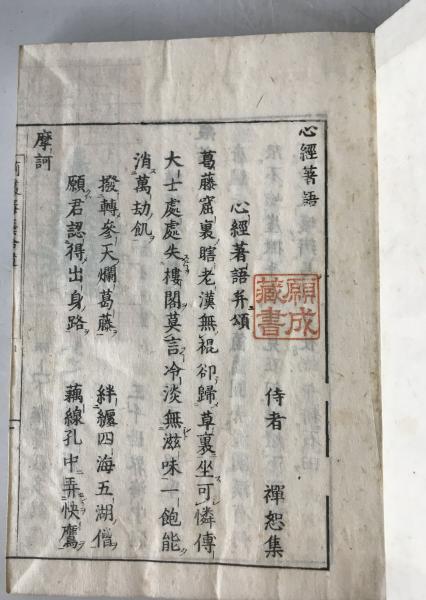 心經著語
侍者 禪恕集
願成
藏書
心經著語并頌
葛藤窟裏瞎老漢無裩卻歸草裏坐可憐傳
大士處處失樓閣莫言冷淡無滋味一飽能
消萬劫飢
撥轉參天爛葛藤 絆纏四海五湖僧
願君認得出身路 藕線孔中弄快鷹
摩訶